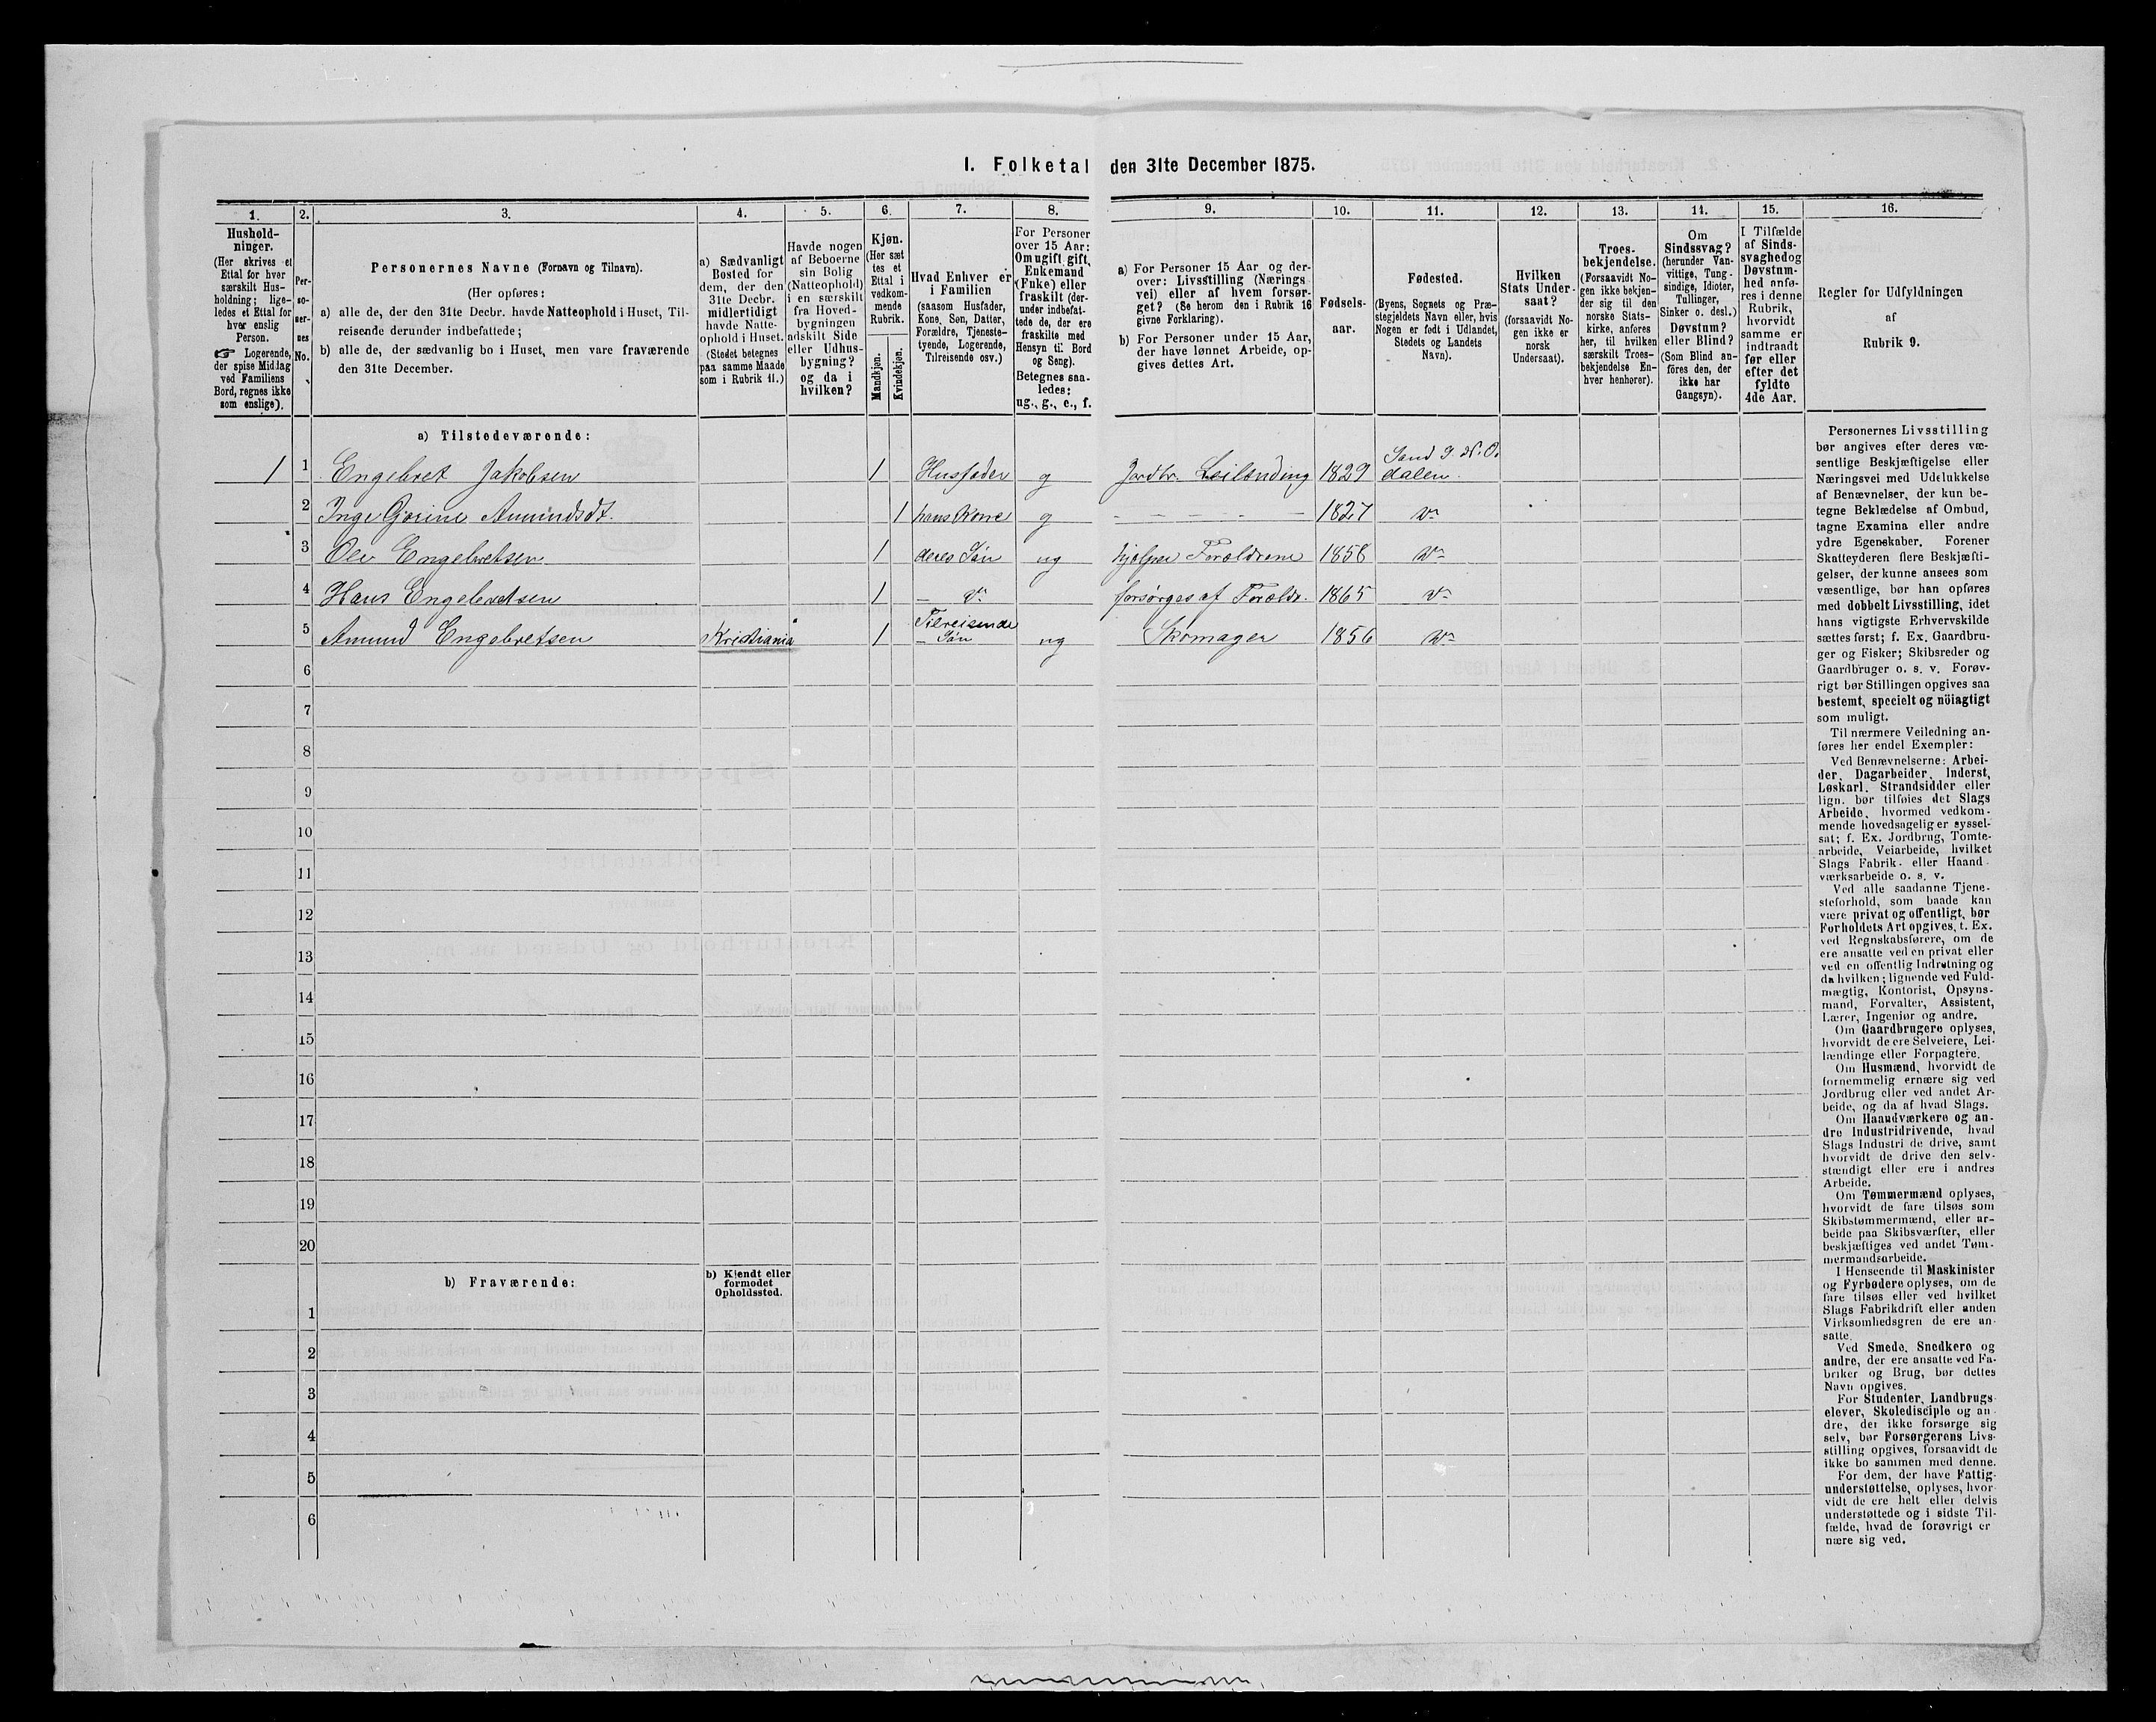 I. Folketal den 31te December 1875.
1. 2. 3. 4. 5. 6. 7. 8. 9. 10. 11. 12. 13. 14. 15. 16.
Hushold-
ninger.
(Her skrives et
Ettal for hver
særskilt Hus-
holdning; lige-
ledes et Ettal for
hver enslig
Person.
☞ Logerende,
der spise Middag
ved Familiens
Bord, regnes ikke
som enslige).
Per-
so-
ner-
nes
No.
Personernes Navne (Fornavn og Tilnavn).
(Her opføres:
a) alle de, der den 31te Decbr. havde Natteophold i Huset, Til-
reisende derunder indbefattede;
b) alle de, der sædvanlig bo i Huset, men vare fraværende
den 31te December.
a) Sædvanligt
Bosted for
dem, der den
31te Decbr.
midlertidigt
havde Natte-
ophold i Huset.
(Stedet betegnes
paa samme Maade
som i Rubrik 11.)
Havde nogen
af Beboerne
sin Bolig
(Natteophold)
i en særskilt
fra Hoved-
bygningen
adskilt Side
eller Udhus-
bygning?
og da i
hvilken?
Kjøn.
(Her sæt
tes et
Ettal i
vedkom-
mende
Rubrik.
Mandkjøn.
Kvindekjøn.
Hvad Enhver er
i Familien
(saasom Husfader,
Kone, Søn, Datter,
Forældre, Tjeneste-
tyende, Logerende,
Tilreisende osv.)
For Personer
over 15 Aar:
Om ugift, gift,
Enkemand
(Enke) eller
fraskilt (der-
under indbefat-
tede de, der ere
fraskilte med
Hensyn til Bord
og Seng).
Betegnes saa-
ledes:
ug., g., e., f.
a) For Personer 15 Aar og der-
over: Livsstilling (Nærings
vei) eller af hvem forsør-
get? (Se herom den i Rubrik 16
givne Forklaring).
b) For Personer under 15 Aar,
der have lønnet Arbeide, op-
gives dettes Art.
Fødsels-
aar.
Fødested.
(Byens, Sognets og Præ-
stegjeldets Navn eller, hvis
Nogen er født i Udlandet,
Stedets og Landets
Navn).
Hvilken
Stats Under-
saat?
(forsaavidt No-
gen ikke er
norsk
Undersaat).
Troes-
bekjendelse.
(Forsaavidt No-
gen ikke bekjen-
der sig til den
norske Stats-
kirke, anføres
her, til hvilken
særskilt Troes-
bekjendelse En-
hver henhører).
Om
Sindssvag?
(herunder Van-
vittige, Tung-
sindige, Idioter,
Tullinger,
Sinker o. desl.)
Døvstum?
eller Blind?
(Som Blind an-
føres den, der
ikke har
Gangsyn).
I Tilfælde
af Sinds-
svaghed og
Døvstum-
hed anfø-
res i denne
Rubrik,
hvorvidt
samme er
indtraadt
før eller
efter det
fyldte
4de Aar.
Regler for Udfyldningen
af
Rubrik 9.
a) Tilstedeværende:
1 1 Engebret Jakobsen 1 Husfader g Jordbr. Leilænding 1829 Sand S. N. O. dalen.
2 Inge Gorine Amundsdt. 1 hans Kone g – – – – – – 1827 do
3 Ole Engebretsen 1 deres Søn ug hjelper Forældrene 1858 do
4 Hans Engebretsen 1 – do forsørges af Forældr. 1865 do
5 Amund Engebretsen Kristiania 1 Tilreisende – Søn ug Skomager 1856 do
6
7
8
9
10
11
12
13
14
15
16
17
18
19
20
b) Fraværende:
b) Kjendt eller
formodet
Opholdssted.
1
2
3
4
5
6
Personernes Livsstilling
bør angives efter deres væ-
sentlige Beskjæftigelse eller
Næringsvei med Udelukkelse
af Benævnelser, der kun be-
tegne Beklædelse af Ombud,
tagne Examina eller andre
ydre Egenskaber. Forener
Skatteyderen flere Beskjæfti-
gelser, der kunne ansees som
væsentlige, bør han opføres
med dobbelt Livsstilling, idet
hans vigtigste Erhvervskilde
sættes først; f. Ex. Gaardbru-
ger og Fisker; Skibsreder og
Gaardbruger o. s. v. Forøv-
rigt bør Stillingen opgives saa
bestemt, specielt og nöiagtigt
som muligt.
Til nærmere Veiledning an-
føres her endel Exempler:
Ved Benævnelserne: Arbei-
der, Dagarbeider, Inderst,
Løskarl, Strandsidder eller
lign. bør tilføies det Slags
Arbeide, hvormed vedkom-
mende hovedsagelig er syssel-
sat; f. Ex. Jordbrug, Tomte-
arbeide, Veiarbeide, hvilket
Slags Fabrik- eller Haand-
værksarbeide o. s. v.
Ved alle saadanne Tjene-
steforhold, som baade kan
være privat og offentligt, bør
Forholdets Art opgives, t. Ex.
ved Regnskabsførere, om de
ere ansatte ved en privat eller
ved en offentlig Indretning og
da hvilken; lignende ved Fuld-
mægtig, Kontorist, Opsyns-
mand, Forvalter, Assistent,
Lærer, Ingeniør og andre.
Om Gaardbrugere oplyses,
hvorvidt de ere Selveiere, Lei-
lændinge eller Forpagtere.
Om Husmænd, hvorvidt de
fornemmelig ernære sig ved
Jordbrug eller ved andet Ar-
beide, og da af hvad Slags.
Om Haandværkere og an-
dre Industridrivende, hvad
Slags Industri de drive, samt
hvorvidt de drive den selv-
stændigt eller ere i andres
Arbeide.
Om Tømmermænd oplyses,
hvorvidt de fare tilsøs som
Skibstømmermænd, eller ar-
beide paa Skibsværfter, eller
beskjæftiges ved andet Tøm-
mermandsarbeide.
I Henseende til Maskinister
og Fyrbødere oplyses, om de
fare tilsøs eller ved hvilket
Slags Fabrikdrift eller anden
Virksomhedsgren de ere an-
satte.
Ved Smede, Snedkere og
andre, der ere ansatte ved Fa-
briker og Brug, bør dettes
Navn opgives.
For Studenter, Landbrugs-
elever, Skoledisciple og an-
dre, der ikke forsørge sig
selv, bør Forsørgerens Livs-
stilling opgives, forsaavidt de
ikke bo sammen med denne.
For dem, der have Fattig-
understøttelse, oplyses, hvor-
vidt de ere helt eller delvis
understøttede og i sidste Til-
fælde, hvad de forøvrigt er
nære sig ved.